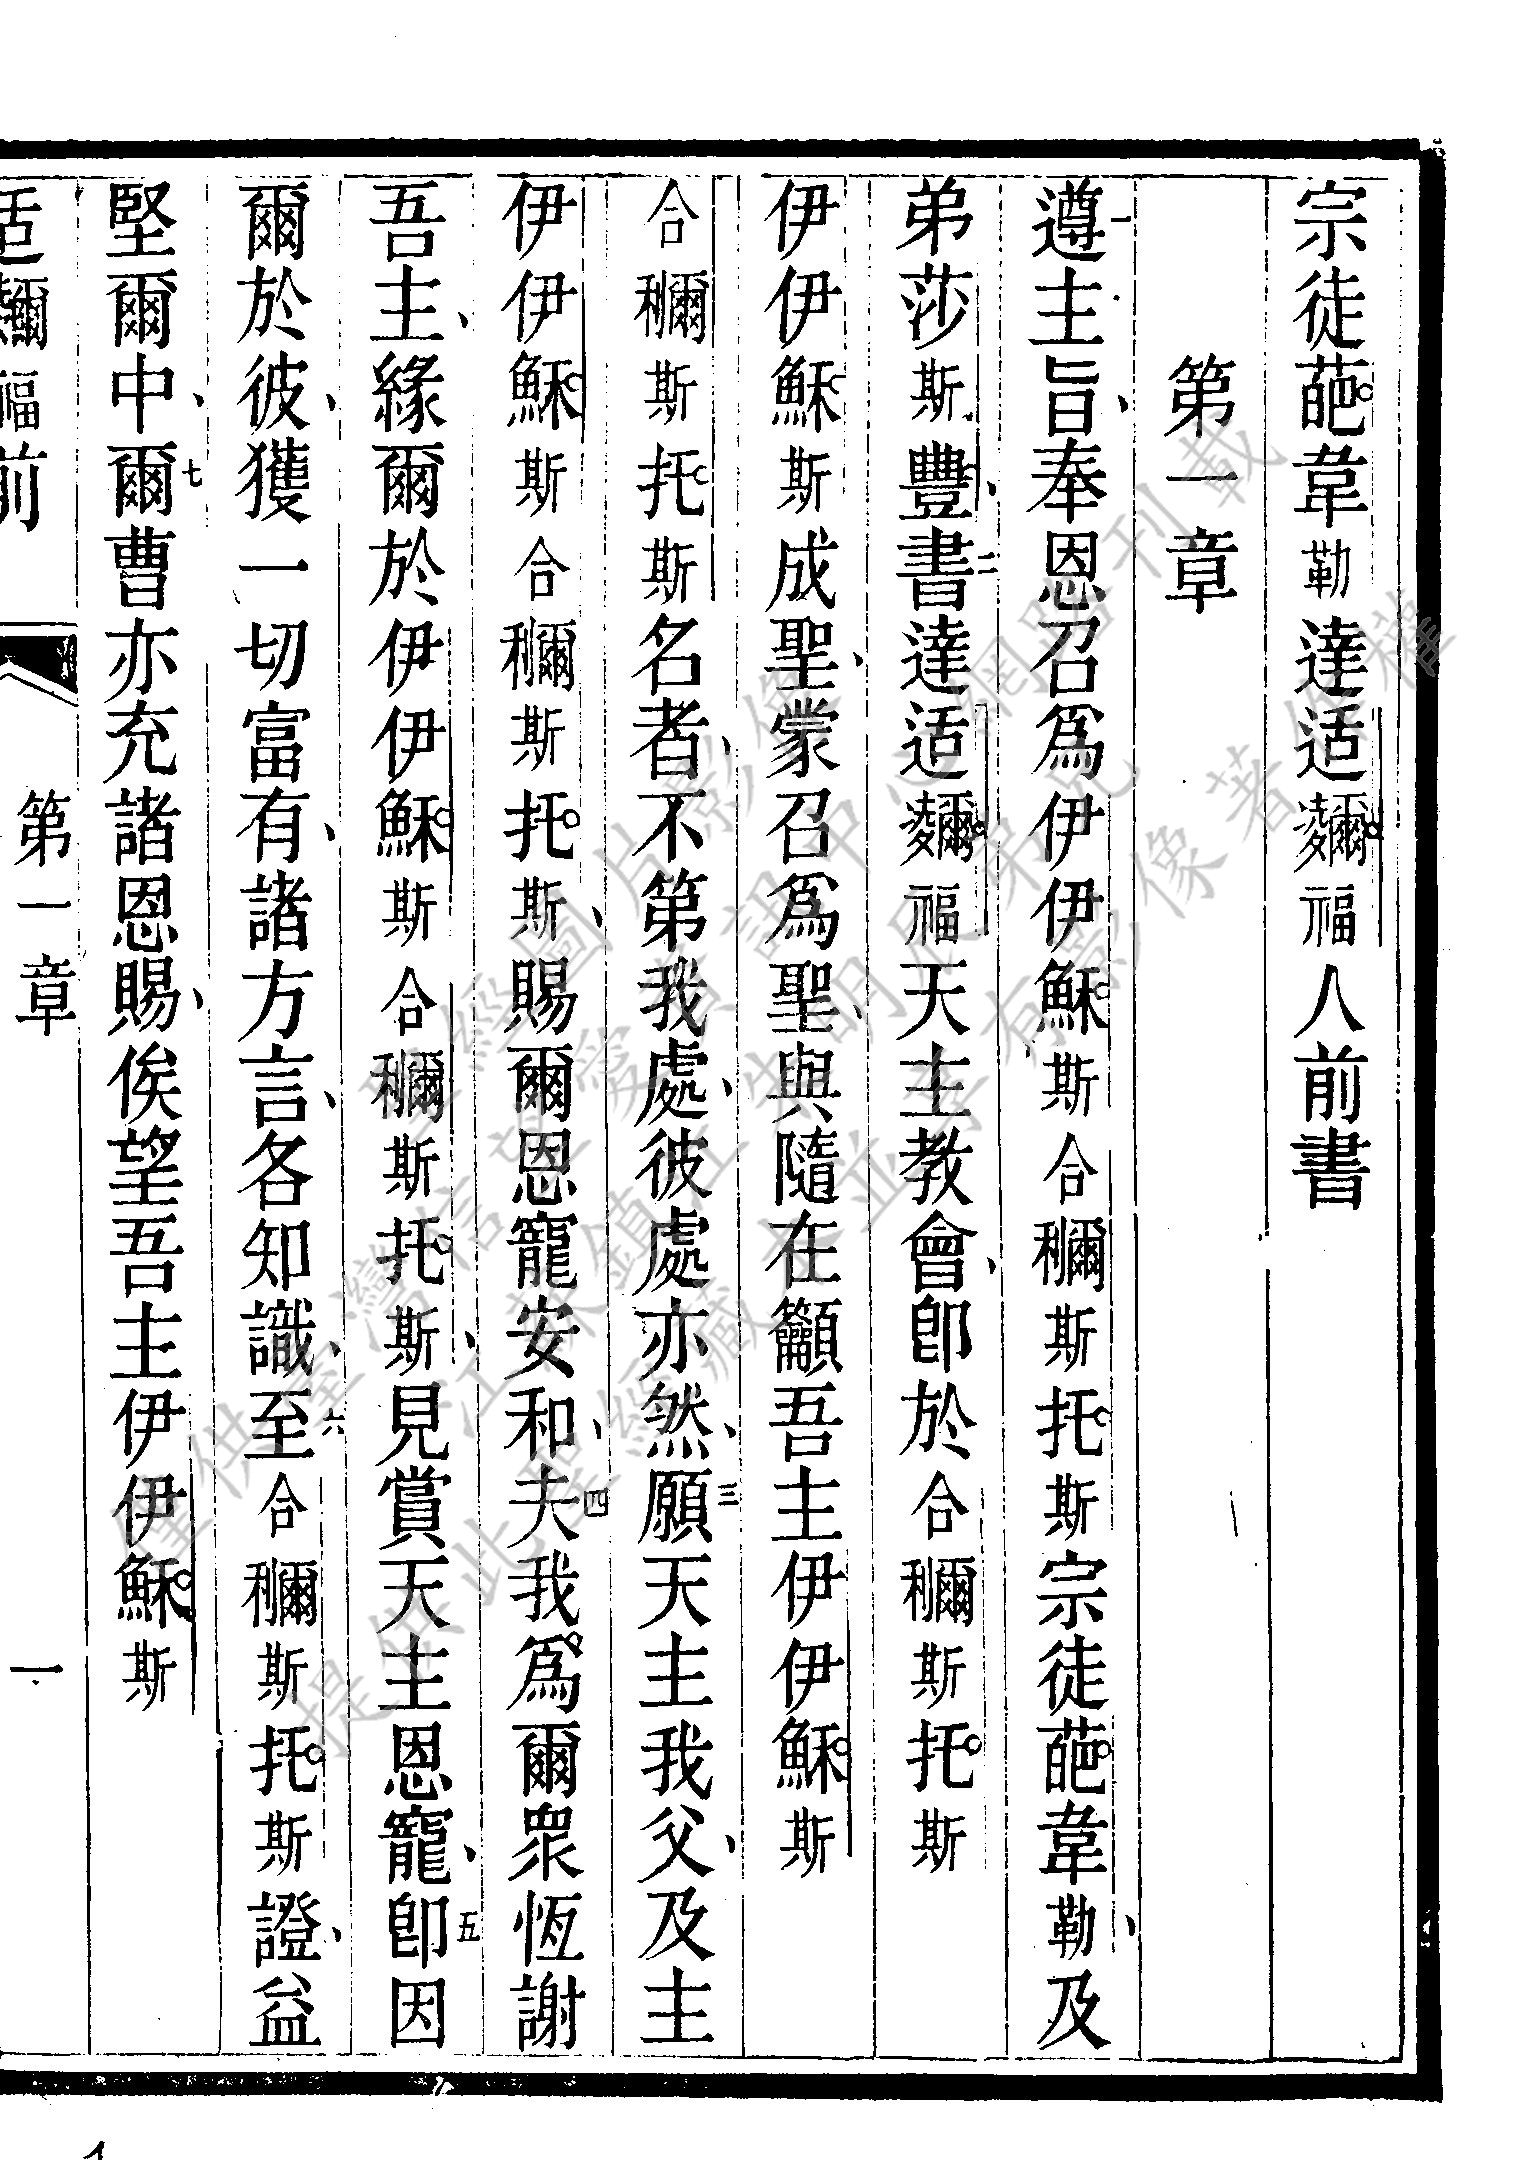 宗徒葩韋勒達适𪋿福人前書
第一章
一遵主旨、奉恩召爲伊伊穌斯合𥠖斯托斯宗徒葩韋勒、及
弟莎斯豐、二書達适𪋿福天主教會、卽於合𥠖斯托斯
伊伊穌斯成聖、蒙召爲聖、與隨在籲吾主伊伊穌斯
合𥠖斯托斯名者、不第我處、彼處亦然、三願天主我父、及主
伊伊穌斯合𥠖斯托斯、賜爾恩寵安和、四夫我爲爾眾恆謝
吾主、緣爾於伊伊穌斯合𥠖斯托斯、見賞天主恩寵、五卽因
爾於彼、獲一切富有、諸方言、各知識、六至合𥠖斯托斯證、益
堅爾中、七爾曹亦充諸恩賜、俟望吾主伊伊穌斯
适𪋿福前 第一章 一